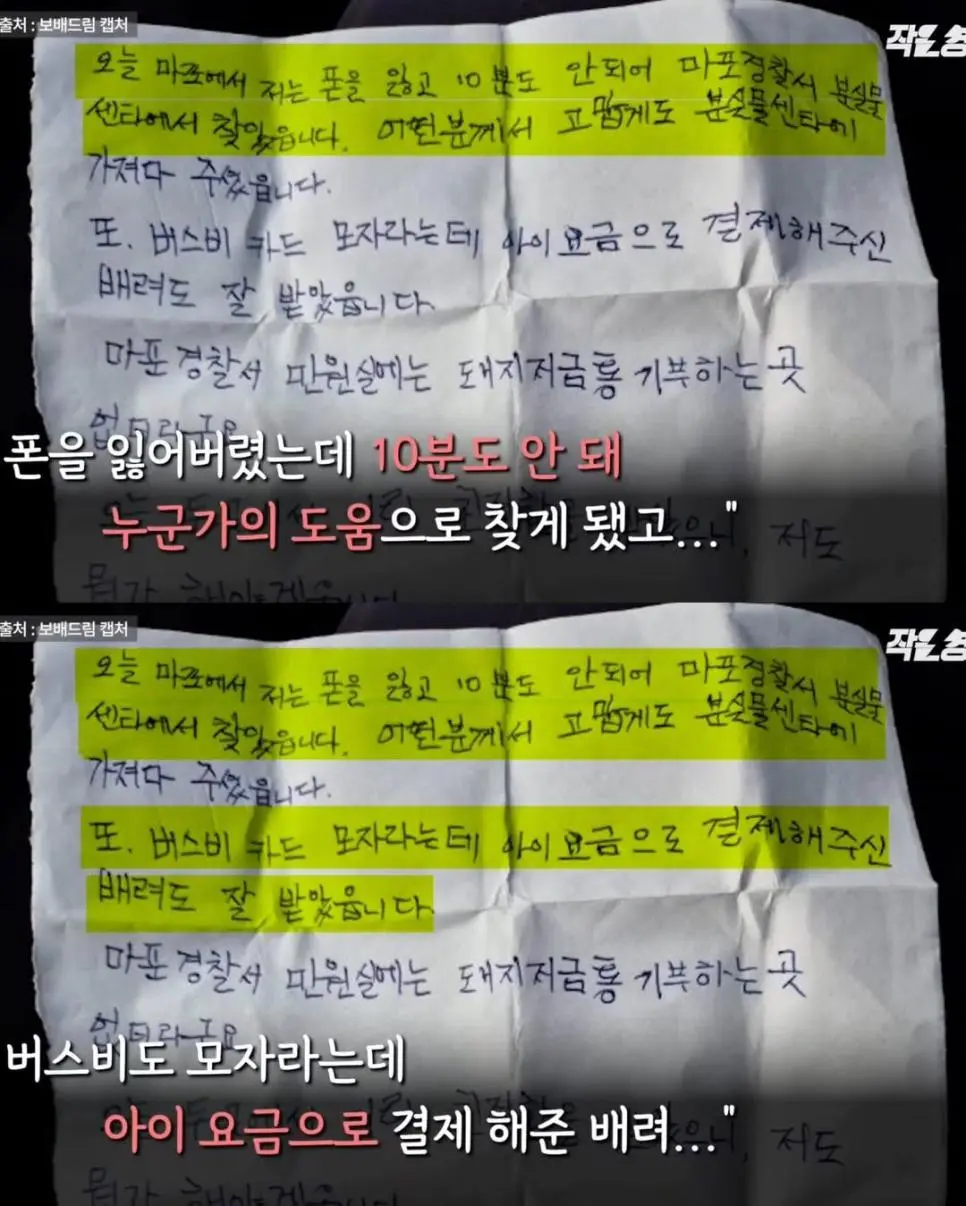 출처 : 보배드림 캡처
작은 쏭
오늘 마포에서 저는 폰을 잃고 10분도 안되어 마포경찰서 분실물
센타에서 찾았읍니다. 어떤분께서 고맙게도 분실물센타에
가져다 주셨읍니다.
또. 버스비 카드 모자라는데 아이요금으로 결제해주신
배려도 잘 받았읍니다.
마포경찰서 민원실에는 돼지저금통 기부하는 곳
없더라구요
폰을 잃어버렸는데 10분도 안 돼
누군가의 도움으로 찾게 됐고..."
저도
뭔가 해야겠읍니다
출처 : 보배드림 캡처
오늘 마포에서 저는 폰을 잃고 10분도 안되어 마포경찰서 분실물
센타에서 찾았읍니다. 어떤분께서 고맙게도 분실물센타에
가져다 주셨읍니다.
또. 버스비 카드 모자라는데 아이요금으로 결제해주신
배려도 잘 받았읍니다.
마포경찰서 민원실에는 돼지저금통 기부하는 곳
없더라구요
버스비도 모자라는데
아이 요금으로 결제 해준 배려..."
저도